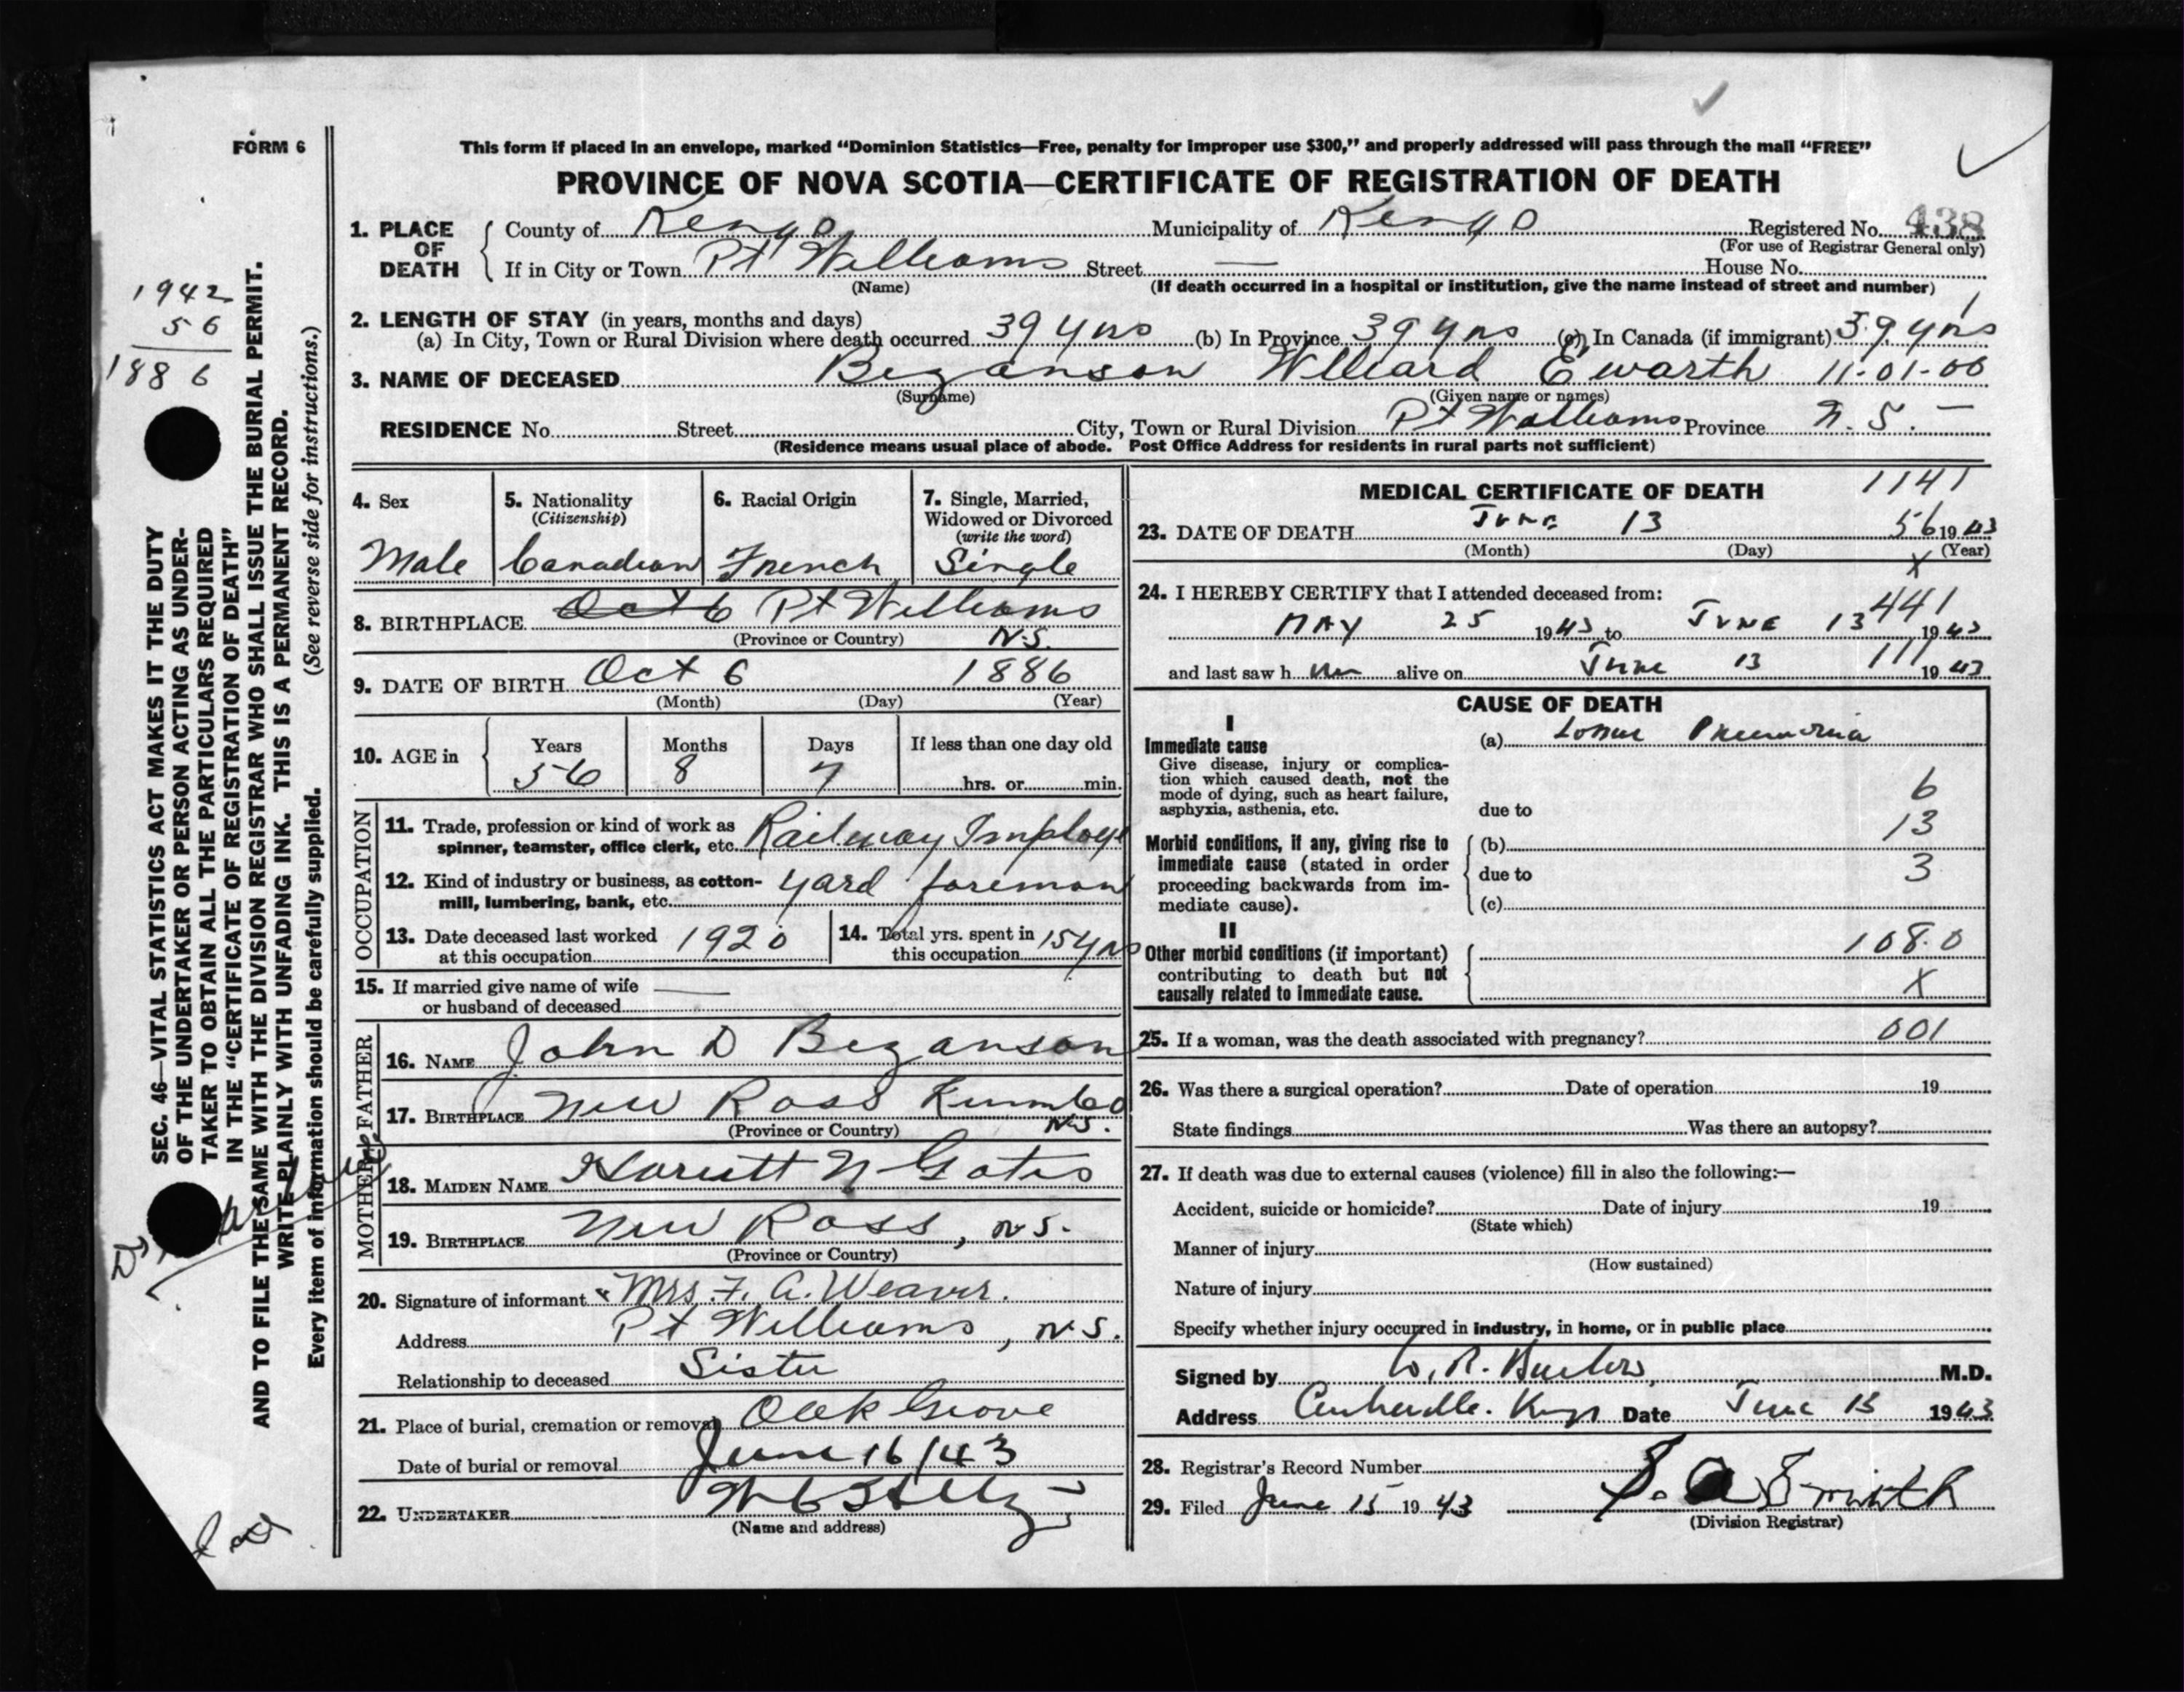 FORM 6
This form if placed in an envelope, marked "Dominion Statistics—Free, penalty for improper use $300," and properly addressed will pass through the mail "FREE"
PROVINCE OF NOVA SCOTIA—CERTIFICATE OF REGISTRATION OF DEATH
1. PLACE OF DEATH County of Kings Municipality of Kings Registered No. 438
(For use of Registrar General only)
If in City or Town Pt Williams Street — House No.
(Name) (If death occurred in a hospital or institution, give the name instead of street and number)
2. LENGTH OF STAY (in years, months and days)
(a) In City, Town or Rural Division where death occurred 39 yrs (b) In Province 39 yrs (c) In Canada (if immigrant) 39 yrs
3. NAME OF DECEASED Bezanson Williard Ewarth 11-01-00
(Surname) (Given name or names)
RESIDENCE No. Street City, Town or Rural Division Pt Williams Province N.S. —
(Residence means usual place of abode. Post Office Address for residents in rural parts not sufficient)
4. Sex 5. Nationality (Citizenship) 6. Racial Origin 7. Single, Married, Widowed or Divorced (write the word)
Male Canadian French Single
8. BIRTHPLACE Oct 6 Pt Williams
(Province or Country) N.S.
9. DATE OF BIRTH Oct 6 1886
(Month) (Day) (Year)
10. AGE in Years Months Days If less than one day old
56 8 7 hrs. or min.
OCCUPATION
11. Trade, profession or kind of work as
spinner, teamster, office clerk, etc. Railway Imploye
12. Kind of industry or business, as cotton-
mill, lumbering, bank, etc. yard foreman
13. Date deceased last worked
at this occupation 1920
14. Total yrs. spent in
this occupation 15 yrs
15. If married give name of wife
or husband of deceased —
FATHER
16. NAME John D Bezanson
17. BIRTHPLACE New Ross N.S.
(Province or Country)
MOTHER
18. MAIDEN NAME Harriett N Gates
19. BIRTHPLACE New Ross, N.S.
(Province or Country)
20. Signature of informant Mrs. F. A. Weaver.
Address Pt Williams, N.S.
Relationship to deceased Sister
21. Place of burial, cremation or removal Oak Grove
Date of burial or removal June 16/43
22. UNDERTAKER
(Name and address)
MEDICAL CERTIFICATE OF DEATH 1141
23. DATE OF DEATH June 13 56 1943
(Month) (Day) (Year)
X
24. I HEREBY CERTIFY that I attended deceased from:
441
MAY 25 1943 to JUNE 13 1943
and last saw h im alive on June 13 111 1943
CAUSE OF DEATH
I
Immediate cause
Give disease, injury or complica-
tion which caused death, not the
mode of dying, such as heart failure,
asphyxia, asthenia, etc.
(a) Lobar Pneumonia
6
due to
13
Morbid conditions, if any, giving rise to
immediate cause (stated in order
proceeding backwards from im-
mediate cause).
(b)
due to 3
(c)
II
Other morbid conditions (if important)
contributing to death but not
causally related to immediate cause.
108.0
X
25. If a woman, was the death associated with pregnancy? 001
26. Was there a surgical operation? Date of operation 19
State findings Was there an autopsy?
27. If death was due to external causes (violence) fill in also the following:—
Accident, suicide or homicide? Date of injury 19
(State which)
Manner of injury
(How sustained)
Nature of injury
Specify whether injury occurred in industry, in home, or in public place
Signed by W. R. M.D.
Address Centreville. Kings Date June 15 1943
28. Registrar's Record Number
29. Filed June 15 1943 S. A Smith
(Division Registrar)
1942
56
1886
SEC. 46—VITAL STATISTICS ACT MAKES IT THE DUTY
OF THE UNDERTAKER OR PERSON ACTING AS UNDER-
TAKER TO OBTAIN ALL THE PARTICULARS REQUIRED
IN THE "CERTIFICATE OF REGISTRATION OF DEATH"
AND TO FILE THE SAME WITH THE DIVISION REGISTRAR WHO SHALL ISSUE THE BURIAL PERMIT.
WRITE PLAINLY WITH UNFADING INK. THIS IS A PERMANENT RECORD.
Every item of information should be carefully supplied. (See reverse side for instructions.)